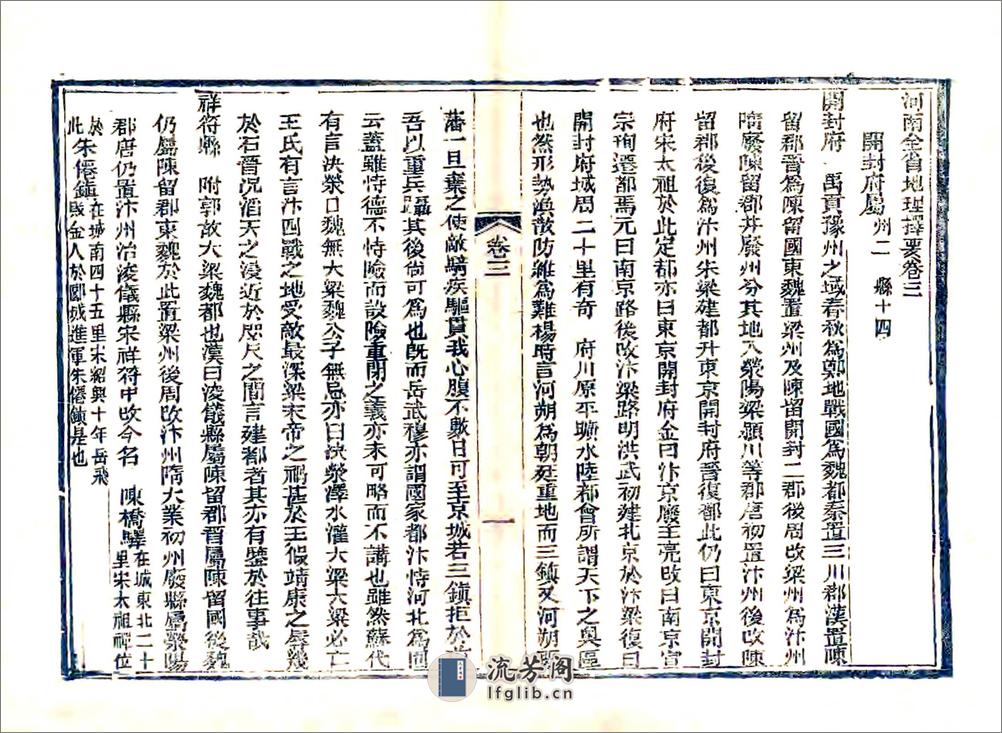 河南全省地理擇要卷三
開封府屬州二 縣十四
開封府 禹貢豫州之域春秋為鄭地戰國為魏都秦置三川郡漢置陳
留郡晉為陳留國東魏置梁州及陳留開封二郡後周改梁州為汴州
隋廢陳留郡并廢州分其地入滎陽梁潁川等郡唐初置汴州後改陳
留郡後復為汴州朱梁建都升東京開封府晉復都此仍曰東京開封
府宋太祖於此定都亦曰東京開封府金曰汴京廢主亮改曰南京宣
宗珣遷都焉元曰南京路後改汴梁路明洪武初建北京於汴梁復曰
開封府城周二十里有奇 府川原平曠水陸都會所謂天下之奧區
也然形勢渙散防維為難楊時言河朔為朝廷重地而三鎮又河朔
卷三
一
藩一旦棄之使敵騎疾驅貫我心腹不數日可至京城若三鎮拒於
吾以重兵躡其後尚可為也既而岳武穆亦謂國家都汴恃河北為固
云蓋雖恃德不恃險而設險重閉之義亦未可略而不講也雖然蘇代
有言決滎口魏無大梁魏公子無忌亦曰決滎澤水灌大梁大梁必亡
王氏有言汴四戰之地受敵最深梁末帝之禍甚於王假靖康之辱幾
於石晉況滔天之浸近於咫尺之間言建都者其亦有鑒於往事哉
祥符縣 附郭故大梁魏都也漢曰浚儀縣屬陳留郡晉屬陳留國後魏
仍屬陳留郡東魏於此置梁州後周改汴州隋大業初州廢縣屬滎陽
郡唐仍置汴州治浚儀縣宋祥符中改今名 陳橋驛在城東北二十
里宋太祖禪位
於此朱僊鎮在城南四十五里宋紹興十年岳飛
敗金人於郾城進軍朱僊鎮是也
流芳閣
lfglib.cn